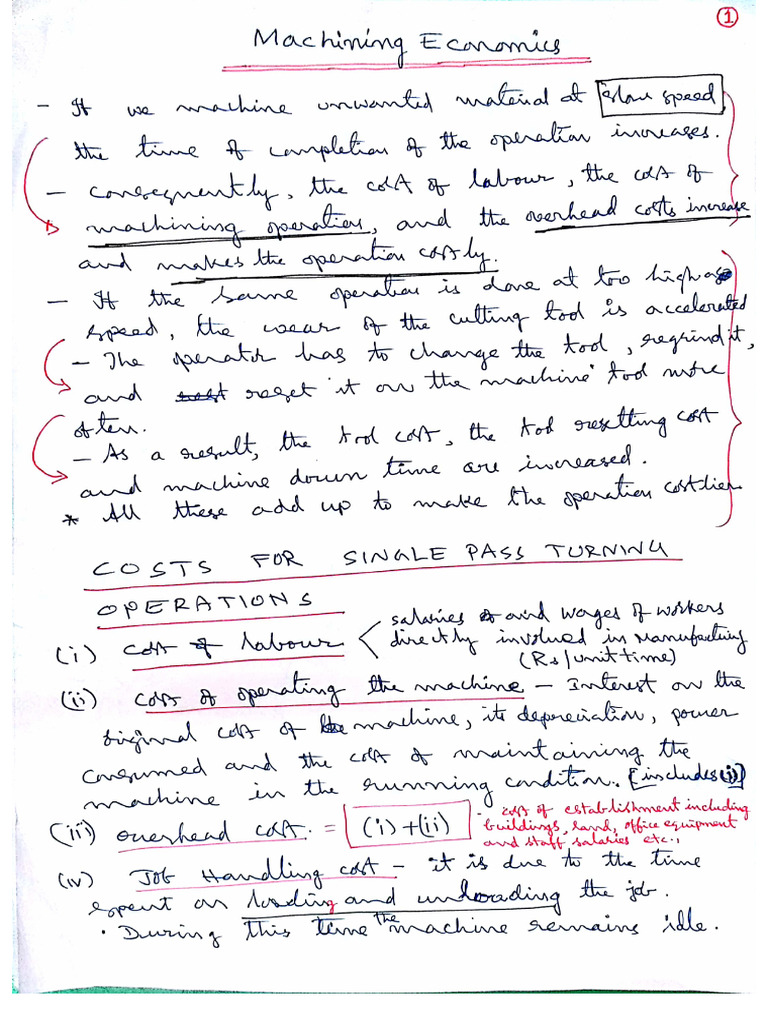 1
Machining Economics
- If we machine unwanted material at slow speed
the time of completion of the operation increases.
- Consequently, the cost of labour, the cost of
machining operation, and the overhead costs increase
and makes the operation costly.
- If the same operation is done at too high a
speed, the wear of the cutting tool is accelerated
- The operator has to change the tool, regrind it,
and reset it on the machine tool more
often.
- As a result, the tool cost, the tool resetting cost
and machine down time are increased.
* All these add up to make the operation costlier
COSTS FOR SINGLE PASS TURNING
OPERATIONS
(i) Cost of labour < salaries and wages of workers
directly involved in manufacturing
(Rs/unit time)
(ii) Cost of operating the machine - Interest on the
original cost of machine, its depreciation, power
consumed and the cost of maintaining the
machine in the running condition. [includes (i)]
(iii) overhead cost. = (i)+(ii) · cost of establishment including
buildings, land, office equipment
and staff salaries etc.,
(iv) Job Handling cost - it is due to the time
spent on loading and unloading the job.
· During this time the machine remains idle.